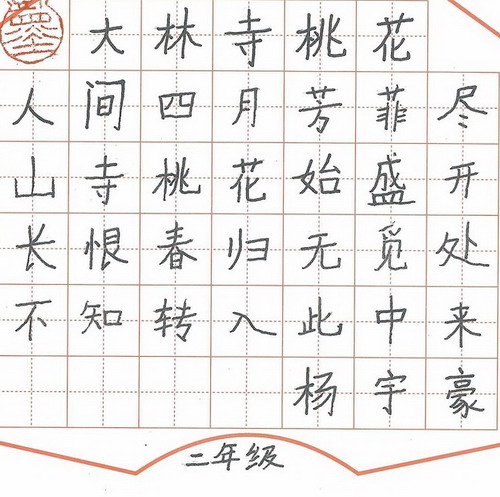 大林寺桃花
人间四月芳菲尽
山寺桃花始盛开
长恨春归无觅处
不知转入此中来
杨宇豪
二年级